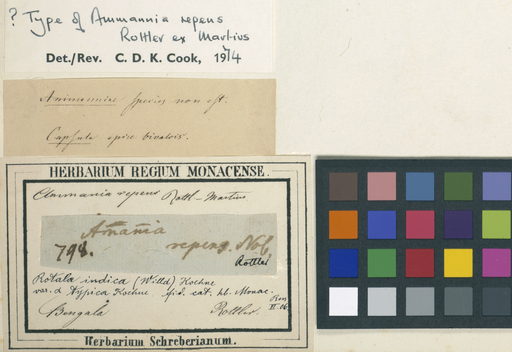 ? Type of Ammannia repens
Rottler ex Martius
Det./Rev. C. D. K. Cook, 1974
Ammanniae species non est.
Capsula apice bivalvis.
HERBARIUM REGIUM MONACENSE.
Ammania repens Rottl-Martius
Amania
798. repens. Nob.
Rottler
Rotala indica (Willd) Koehne
var. α typica Koehne fid. cat. hb. Monac.
Bengala Rottler.
II.06
Herbarium Schreberianum.